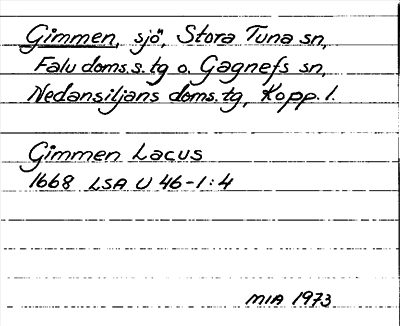 Gimmen, sjö, Stora Tuna sn,
Falu doms.s.tg o. Gagnefs sn,
Nedansiljans doms.tg, Kopp. l.
Gimmen Lacus
1668 LSA U 46-1:4
MIA 1973